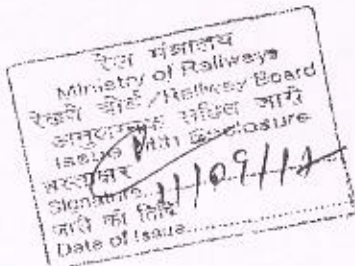 रेल मंत्रालय
Ministry of Railways
रेलवे बोर्ड / Railway Board
अनुलग्नक सहित जारी
Issue With Enclosure
हस्ताक्षर
Signature
11/09/
जारी की तिथि
Date of Issue